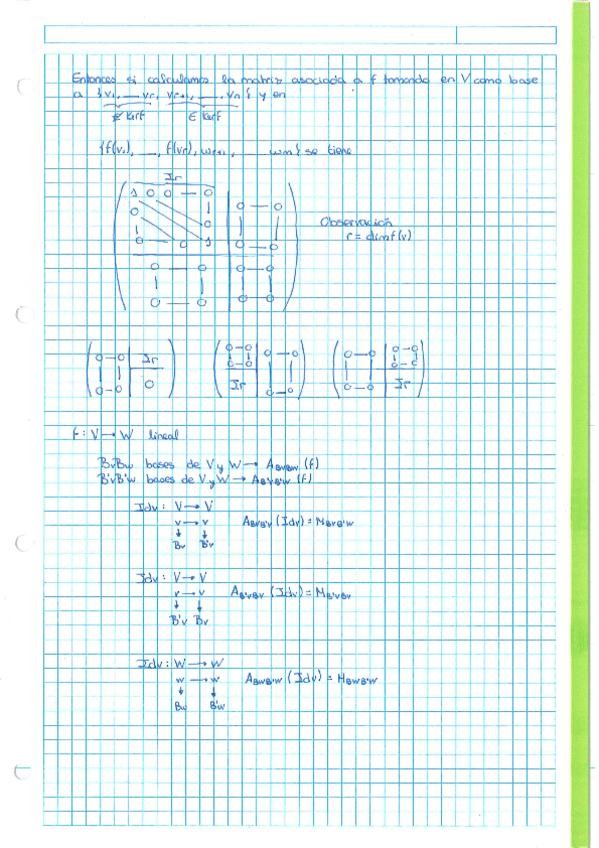 Entonces si calculamos la matriz asociada a f tomando en V como base
a {v₁, __ vr, vr+1, __, vn} y en
∉ Kerf ∈ Kerf
{f(v₁), __, f(vr), wr+1, __ wm} se tiene
Ir
1 0 0 — 0
0 | 0 — 0
| 0 | |
0 — 0 1 0 — 0
0 — 0 0 — 0
| | | |
0 — 0 0 — 0
Observación
r = dimf(v)
0—0 Ir
| |
0—0 0
0—0
0—0
Ir
0—0
| |
0—0
0—0
| |
0—0
0—0
0—0
Ir
f: V → W lineal
BvBw bases de V y W → ABvBw (f)
B'vB'w bases de V y W → AB'vB'w (f)
Idv: V → V
v → v ABvB'v (Idv) = MBvB'v
↓ ↓
Bv B'v
Idv: V → V
v → v AB'vBv (Idv) = MB'vBv
↓ ↓
B'v Bv
Idv: W → W
w → w ABwB'w (Idv) = MBwB'w
↓ ↓
Bw B'w